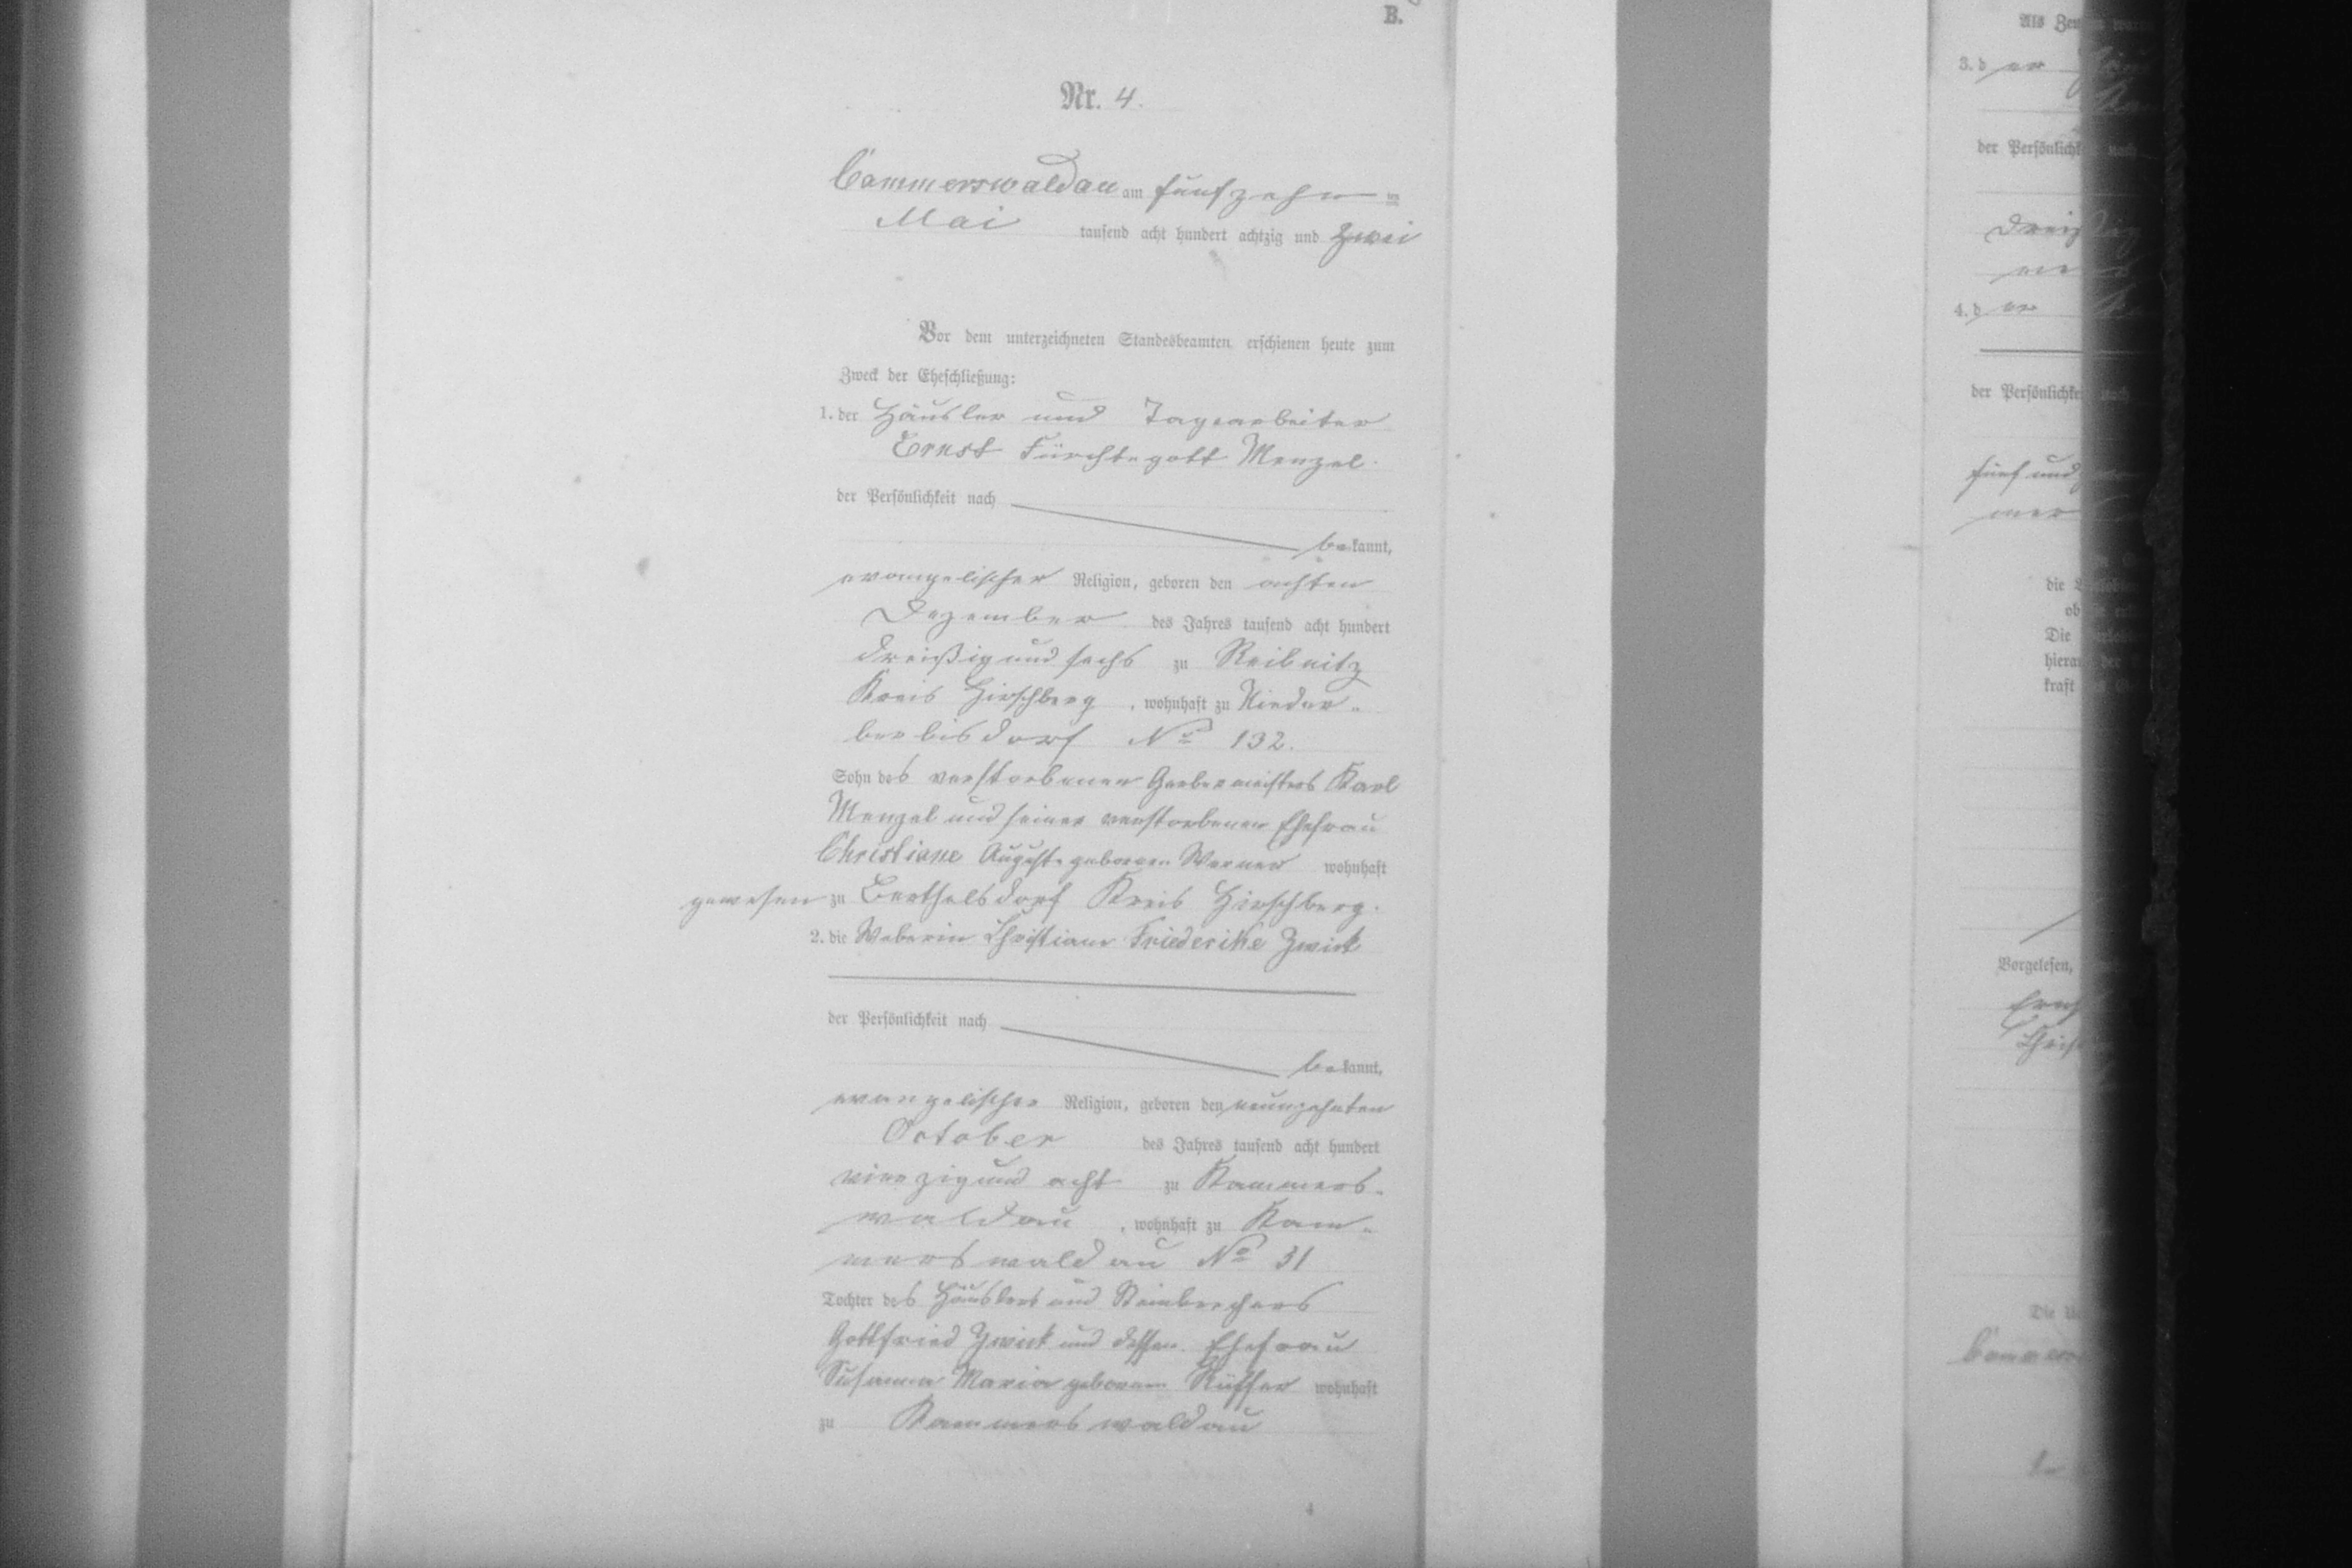 B.
Nr. 4.
Cammerswaldau am fünfzehn ten
Mai tausend acht hundert achtzig und zwei
Vor dem unterzeichneten Standesbeamten erschienen heute zum
Zweck der Eheschließung:
1. der Häusler und Tagearbeiter
Ernst Fürchtegott Menzel
der Persönlichkeit nach
bekannt,
evangelischer Religion, geboren den achten
Dezember des Jahres tausend acht hundert
dreißig und sechs zu Reibnitz
Kreis Hirschberg, wohnhaft zu Nieder-
berbisdorf No 132.
Sohn des verstorbenen Gerbermeisters Karl
Menzel und seiner verstorbenen Ehefrau
Christiane Auguste geborene Werner wohnhaft
gewesen zu Berthelsdorf Kreis Hirschberg.
2. die Weberin Christiane Friederike Zwick
der Persönlichkeit nach
bekannt,
evangelischer Religion, geboren den neunzehnten
October des Jahres tausend acht hundert
vierzig und acht zu Kammers-
waldau, wohnhaft zu Kam-
merswaldau No 31
Tochter des Häuslers und Steinbrechers
Gottfried Zwick und dessen Ehefrau
Susanna Maria geborene Rüffer wohnhaft
zu Kammerswaldau
4
Als
3. d er
der
4. d er
der
fünf und
die
Die
kraft
Vorgelesen,
Die